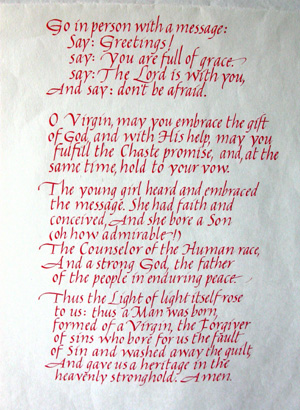 Go in person with a message:
Say: Greetings!
say: You are full of grace.
say: The Lord is with you,
And say: don't be afraid.
O Virgin, may you embrace the gift
of God, and with His help, may you
fulfill the Chaste promise, and, at the
same time, hold to your vow.
The young girl heard and embraced
the message. She had faith and
conceived, And she bore a Son
(oh how admirable!)
The Counselor of the Human race,
And a strong God, the father
of the people in enduring peace.
Thus the Light of light itself rose
to us: thus a Man was born,
formed of a Virgin, the Forgiver
of sins who bore for us the fault
of Sin and washed away the guilt,
And gave us a heritage in the
heavenly stronghold. Amen.